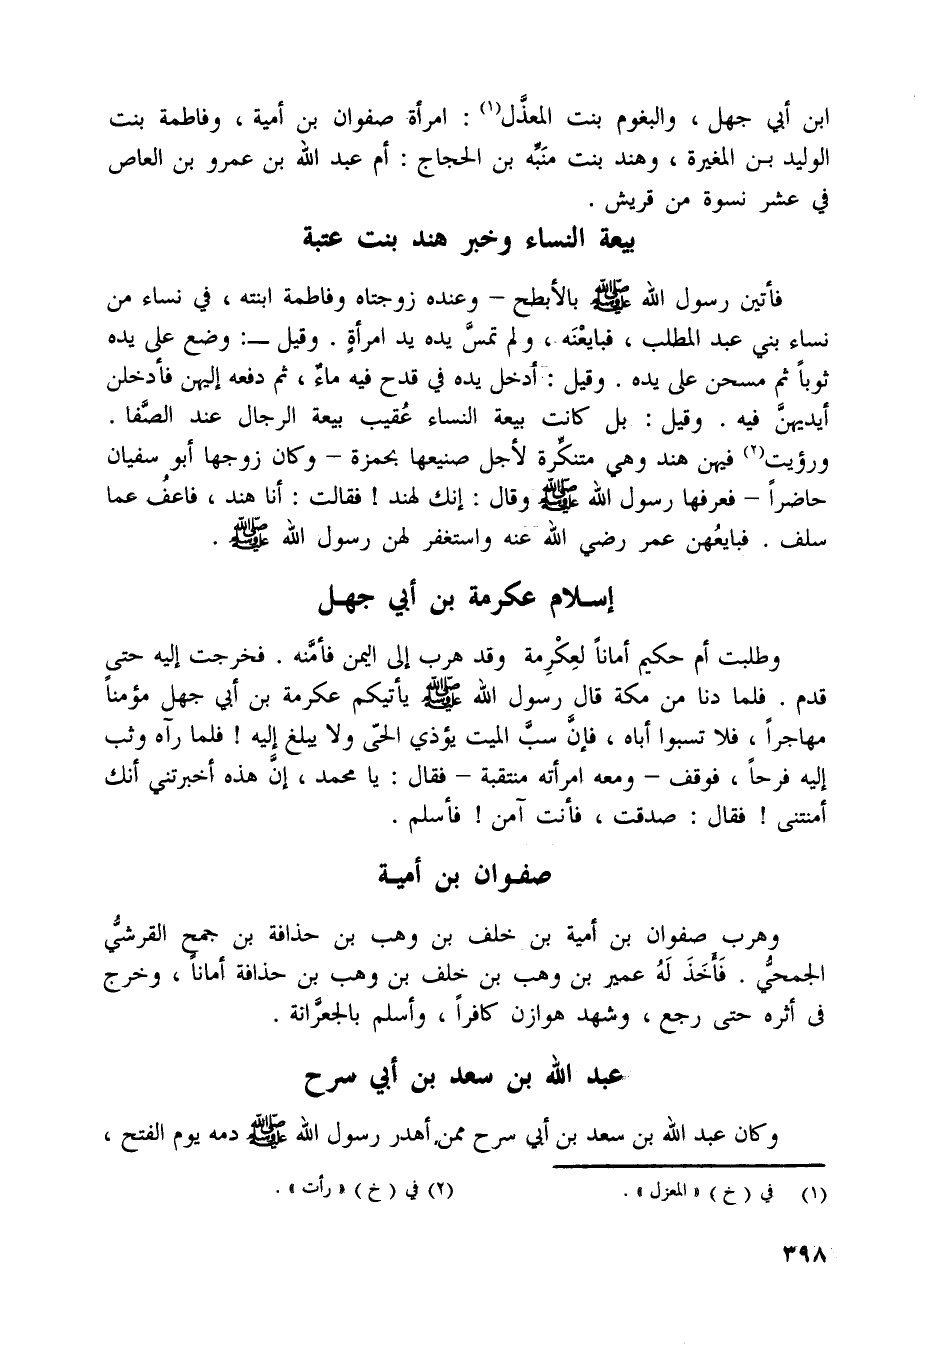 ابن أبي جهل ، والبغوم بنت المعذَّل(١) : امرأة صفوان بن أمية ، وفاطمة بنت
الوليد بـن المغيرة ، وهند بنت منَبِّه بن الحجاج : أم عبد الله بن عمرو بن العاص
في عشر نسوة من قريش .
بيعة النساء وخبر هند بنت عتبة
فأتين رسول الله ﷺ بالأبطح – وعنده زوجتاه وفاطمة ابنته ، في نساء من
نساء بني عبد المطلب ، فبايعْنَه ، ولم تمسَّ يده يد امرأةٍ . وقيل –: وضع على يده
ثوباً ثم مسحن على يده . وقيل : أدخل يده في قدح فيه ماءٌ ، ثم دفعه إليهن فأدخلن
أيديهنَّ فيه . وقيل : بل كانت بيعة النساء عُقيب بيعة الرجال عند الصَّفا .
ورؤيت(٢) فيهن هند وهي متنكِّرة لأجل صنيعها بحمزة – وكان زوجها أبو سفيان
حاضراً – فعرفها رسول الله ﷺ وقال : إنك لهند ! فقالت : أنا هند ، فاعفُ عما
سلف . فبايعُهن عمر رضي الله عنه واستغفر لهن رسول الله ﷺ .
إسـلام عكرمة بن أبي جهـل
وطلبت أم حكيم أماناً لعِكْرِمة وقد هرب إلى اليمن فأمَّنه . فخرجت إليه حتى
قدم . فلما دنا من مكة قال رسول الله ﷺ يأتيكم عكرمة بن أبي جهل مؤمناً
مهاجراً ، فلا تسبوا أباه ، فإنَّ سبَّ الميت يؤذي الحَى ولا يبلغ إليه ! فلما رآه وثب
إليه فرحاً ، فوقف – ومعه امرأته منتقبة – فقال : يا محمد ، إنَّ هذه أخبرتني أنك
أمنتنى ! فقال : صدقت ، فأنت آمن ! فأسلم .
صفـوان بن أميـة
وهرب صفوان بن أمية بن خلف بن وهب بن حذافة بن جمح القرشيُّ
الجمحيُّ . فَأَخَذَ لَهُ عمير بن وهب بن خلف بن وهب بن حذافة أماناً ، وخرج
فى أثره حتى رجع ، وشهد هوازن كافراً ، وأسلم بالجعرَّانة .
عبد الله بن سعد بن أبي سرح
وكان عبد الله بن سعد بن أبي سرح ممن أهدر رسول الله ﷺ دمه يوم الفتح ،
(١) في ( خ ) « المعزل » . (٢) في ( خ ) « رأت » .
٣٩٨